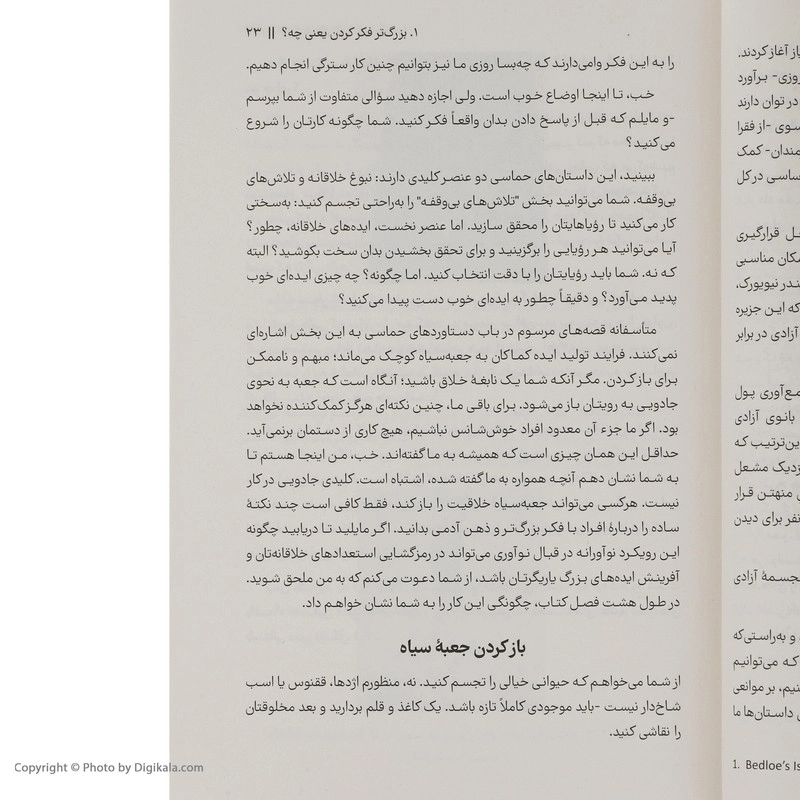 ۱. بزرگ‌تر فکر کردن یعنی چه؟ || ۲۳
را به این فکر وامی‌دارند که چه‌بسا روزی ما نیز بتوانیم چنین کار سترگی انجام دهیم.
خب، تا اینجا اوضاع خوب است. ولی اجازه دهید سؤالی متفاوت از شما بپرسم
-و مایلم که قبل از پاسخ دادن بدان واقعاً فکر کنید. شما چگونه کارتان را شروع
می‌کنید؟
ببینید، این داستان‌های حماسی دو عنصر کلیدی دارند: نبوغ خلاقانه و تلاش‌های
بی‌وقفه. شما می‌توانید بخش "تلاش‌های بی‌وقفه" را به‌راحتی تجسم کنید: به‌سختی
کار می‌کنید تا رؤیاهایتان را محقق سازید. اما عنصر نخست، ایده‌های خلاقانه، چطور؟
آیا می‌توانید هر رؤیایی را برگزینید و برای تحقق بخشیدن بدان سخت بکوشید؟ البته
که نه. شما باید رؤیایتان را با دقت انتخاب کنید. اما چگونه؟ چه چیزی ایده‌ای خوب
پدید می‌آورد؟ و دقیقاً چطور به ایده‌ای خوب دست پیدا می‌کنید؟
متأسفانه قصه‌های مرسوم در باب دستاوردهای حماسی به این بخش اشاره‌ای
نمی‌کنند. فرایند تولید ایده کماکان به جعبه‌سیاه کوچک می‌ماند؛ مبهم و ناممکن
برای باز کردن. مگر آنکه شما یک نابغهٔ خلاق باشید؛ آنگاه است که جعبه به نحوی
جادویی به رویتان باز می‌شود. برای باقی ما، چنین نکته‌ای هرگز کمک‌کننده نخواهد
بود. اگر ما جزء آن معدود افراد خوش‌شانس نباشیم، هیچ کاری از دستمان برنمی‌آید.
حداقل این همان چیزی است که همیشه به ما گفته‌اند. خب، من اینجا هستم تا
به شما نشان دهم آنچه همواره به ما گفته شده، اشتباه است. کلیدی جادویی در کار
نیست. هرکسی می‌تواند جعبه‌سیاه خلاقیت را باز کند، فقط کافی است چند نکتهٔ
ساده را دربارهٔ افراد با فکر بزرگ‌تر و ذهن آدمی بدانید. اگر مایلید تا دریابید چگونه
این رویکرد نوآورانه در قبال نوآوری می‌تواند در رمزگشایی استعدادهای خلاقانه‌تان و
آفرینش ایده‌های بزرگ یاریگرتان باشد، از شما دعوت می‌کنم که به من ملحق شوید.
در طول هشت فصل کتاب، چگونگی این کار را به شما نشان خواهم داد.
باز کردن جعبهٔ سیاه
از شما می‌خواهم که حیوانی خیالی را تجسم کنید. نه، منظورم اژدها، ققنوس یا اسب
شاخ‌دار نیست -باید موجودی کاملاً تازه باشد. یک کاغذ و قلم بردارید و بعد مخلوقتان
را نقاشی کنید.
از آغاز کردند.
روزی- برآورد
در توان دارند
سوی -از فقرا
مندان- کمک
ساسی در کل
قرارگیری
مکان مناسبی
ندر نیویورک،
که این جزیره
آزادی در برابر
مع‌آوری پول
بانوی آزادی
ین‌ترتیب که
زدیک مشعل
منهتن قرار
نفر برای دیدن
جسمهٔ آزادی
و به‌راستی که
که می‌توانیم
نیم، بر موانعی
داستان‌ها ما
1. Bedloe's Is
Copyright © Photo by Digikala.com